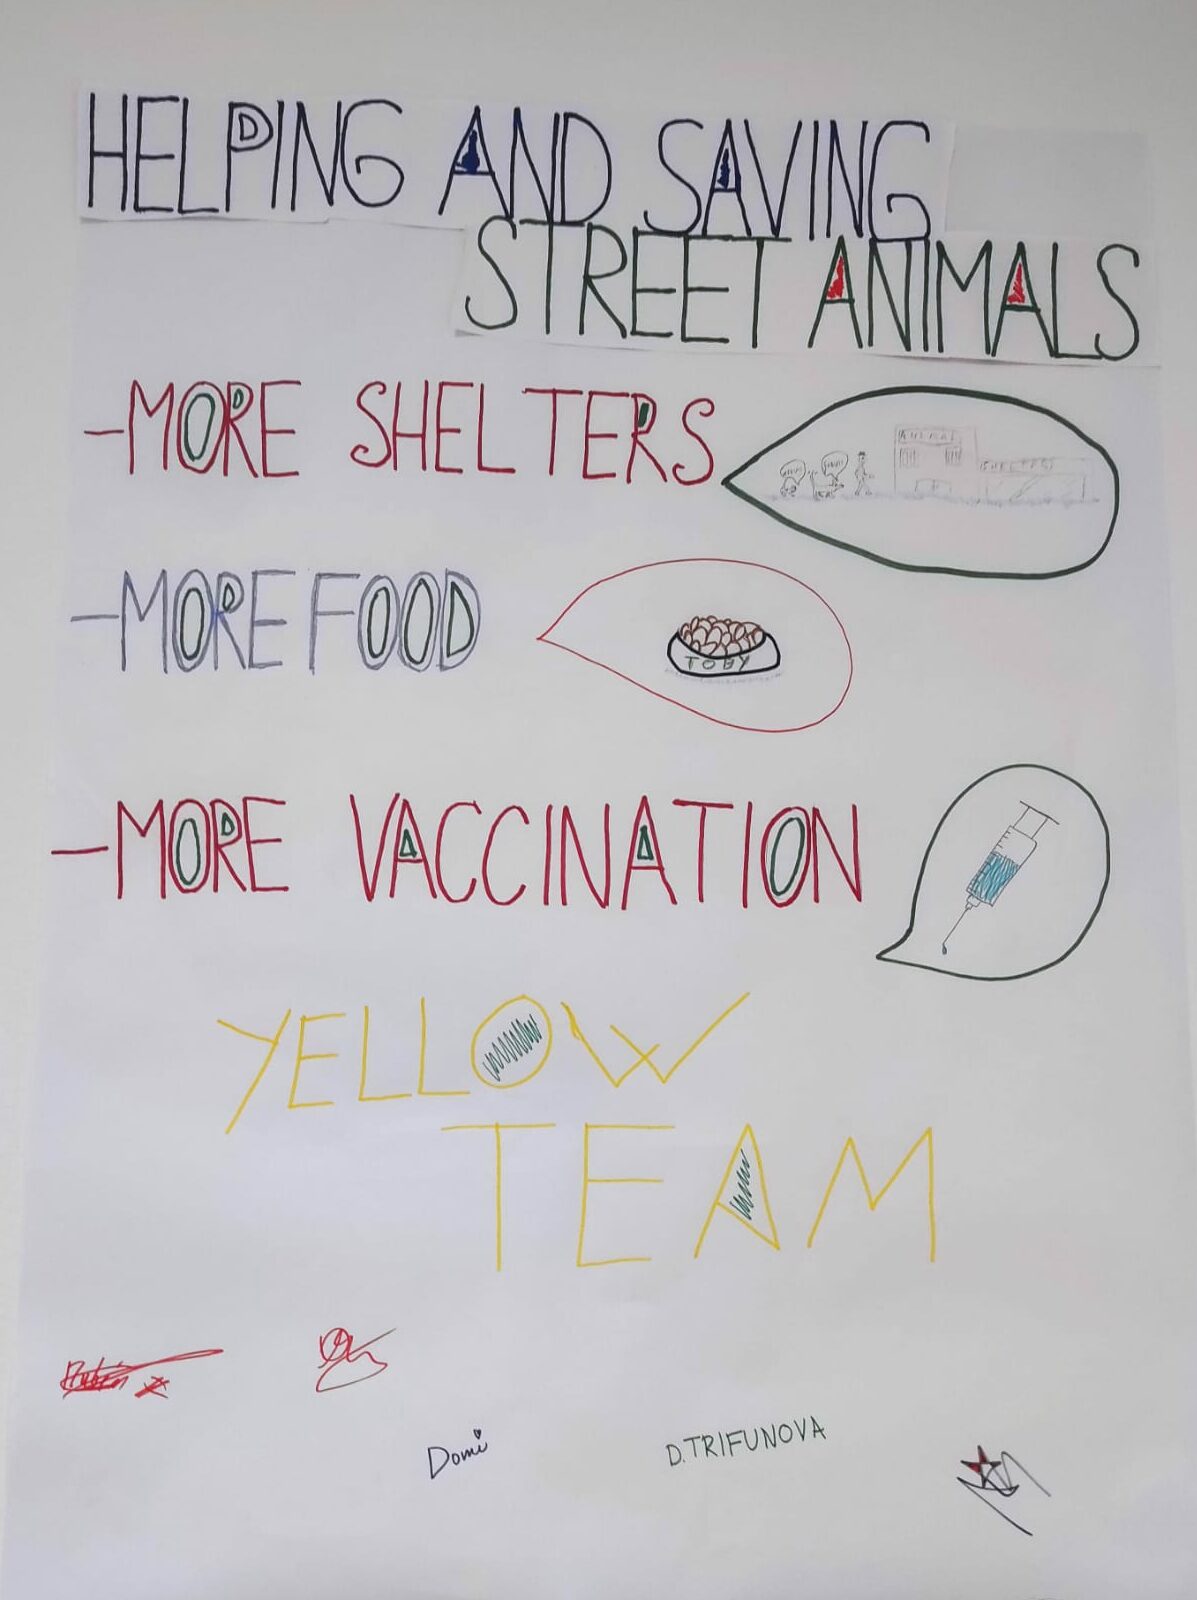 HELPING AND SAVING
STREET ANIMALS
-MORE SHELTERS
ANIMAL
SHELTERS
-MORE FOOD
TOBY
-MORE VACCINATION
YELLOW
TEAM
Rubén
Domi
D.TRIFUNOVA